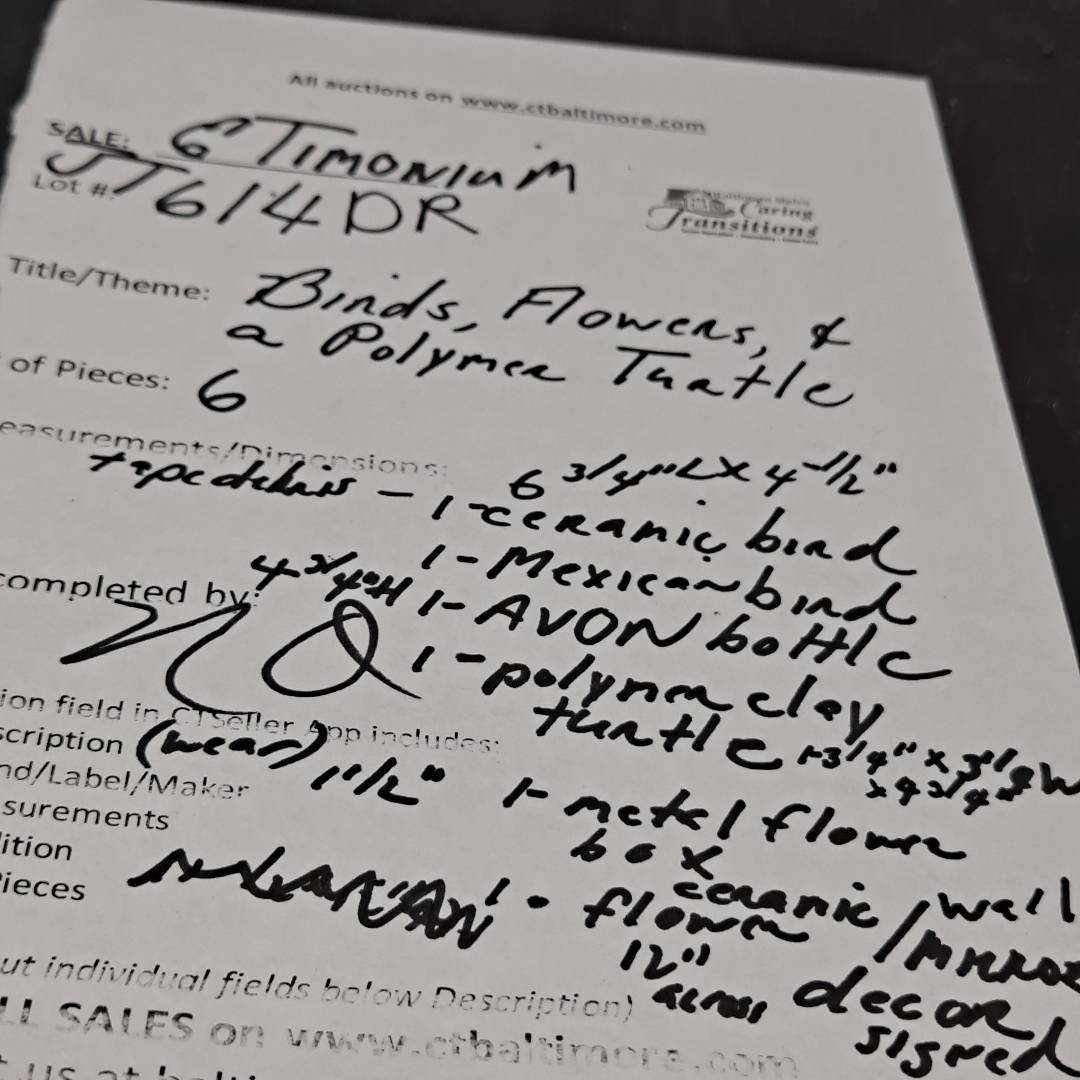 All auctions on www.ctbaltimore.com
SALE: TIMONIUM
Lot #: JT614DR
Caring
Transitions
Title/Theme: Birds, Flowers, &
a Polymer Turtle
of Pieces: 6
easurements/Dimensions: 6 3/4"L X 4 1/2"
tape debris - 1-ceramic bird
1-Mexican bird
completed by: 4 3/4"H 1-AVON bottle
1-polymer clay
turtle 1-3/4" x 3 1/2 W
x 4 3/4"
ion field in CTSeller App includes:
scription (wear) 1 1/2" 1-metal flower
box
nd/Label/Maker
surements
dition
ieces
1-flower ceramic/wall
/mirror
12"
across decor
signed
ut individual fields below Description)
LL SALES on www.ctbaltimore.com
us at